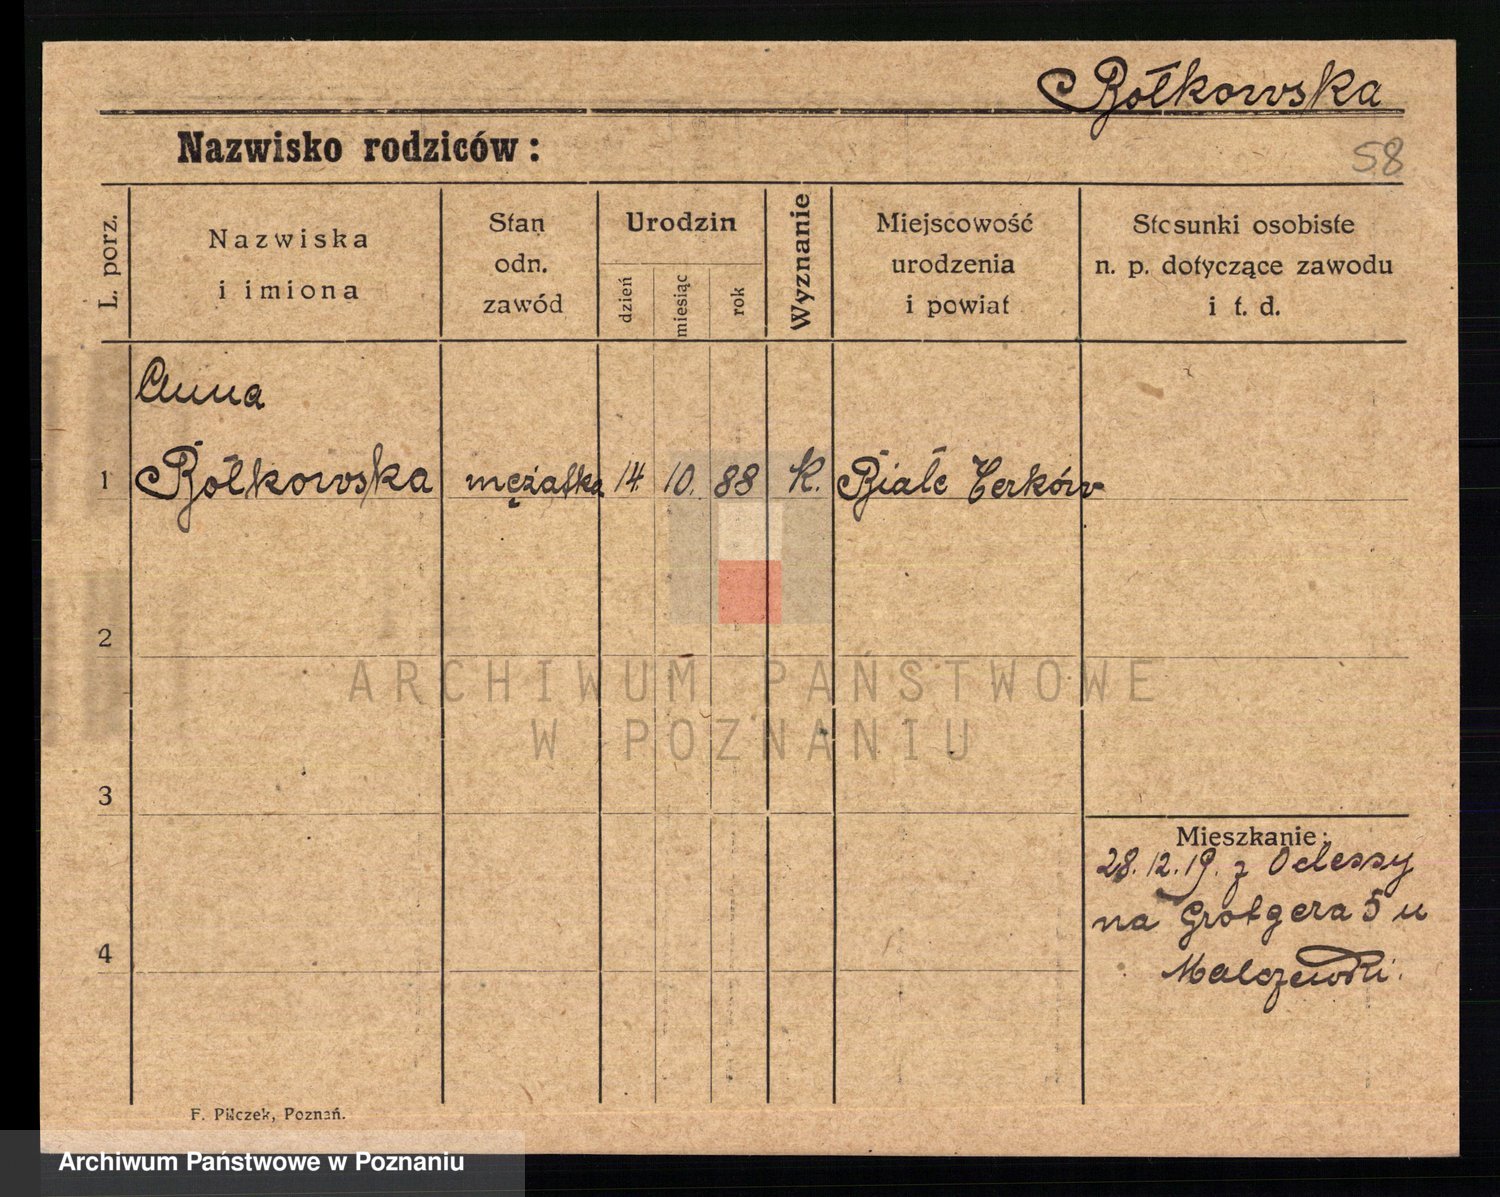 Bółkowska
Nazwisko rodziców:
58
L. porz.
Nazwiska
i imiona
Stan
odn.
zawód
Urodzin
dzień
miesiąc
rok
Wyznanie
Miejscowość
urodzenia
i powiat
Stosunki osobiste
n. p. dotyczące zawodu
i t. d.
Anna
1 Bółkowska mężatka 14. 10. 88 K. Białe Cerków
2
ARCHIWUM PAŃSTWOWE
W POZNANIU
3
Mieszkanie:
28.12.19. z Odessy
na Grotgera 5 u
4
Malczewski.
F. Pilczek, Poznań.
Archiwum Państwowe w Poznaniu